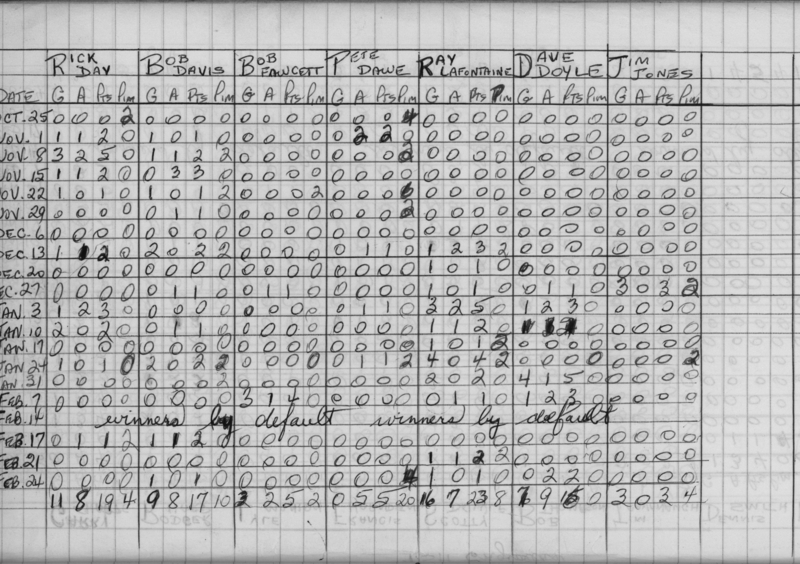 RICK DAY BOB DAVIS BOB FAWCETT PETE DAWE RAY LAFONTAINE DAVE DOYLE JIM JONES
DATE G A Pts Pim G A Pts Pim G A Pts Pim G A Pts Pim G A Pts Pim G A Pts Pim G A Pts Pim
OCT. 25 0 0 0 2 0 0 0 0 0 0 0 0 0 0 0 4 0 0 0 0 0 0 0 0 0 0 0 0
NOV. 1 1 1 2 0 1 0 1 0 0 0 0 0 0 2 2 0 0 0 0 0 0 0 0 0 0 0 0 0
NOV. 8 3 2 5 0 1 1 2 2 0 0 0 0 0 0 0 2 0 0 0 0 0 0 0 0 0 0 0 0
NOV. 15 1 1 2 0 0 3 3 0 0 0 0 0 0 0 0 0 0 0 0 0 0 0 0 0 0 0 0 0
NOV. 22 1 0 1 0 1 0 1 2 0 0 0 2 0 0 0 6 0 0 0 0 0 0 0 0 0 0 0 0
NOV. 29 0 0 0 0 0 1 1 0 0 0 0 0 0 0 0 2 0 0 0 0 0 0 0 0 0 0 0 0
DEC. 6 0 0 0 0 0 0 0 0 0 0 0 0 0 0 0 0 0 0 0 0 0 0 0 0 0 0 0 0
DEC. 13 1 1 2 0 2 0 2 2 0 0 0 0 0 1 1 0 1 2 3 2 0 0 0 0 0 0 0 0
DEC. 20 0 0 0 0 0 0 0 0 0 0 0 0 0 0 0 0 1 0 1 0 0 0 0 0 0 0 0 0
DEC. 27 0 0 0 0 0 1 1 0 0 1 1 0 0 0 0 0 1 0 1 0 0 1 1 0 3 0 3 2
JAN. 3 1 2 3 0 0 0 0 0 0 0 0 0 0 1 1 0 3 2 5 0 1 2 3 0 0 0 0 0
JAN. 10 2 0 2 0 0 1 1 0 0 0 0 0 0 0 0 0 1 1 2 0 1 1 2 0 0 0 0
JAN. 17 0 0 0 0 0 0 0 0 0 0 0 0 0 0 0 0 1 0 1 2 0 0 0 0 0 0 0 0
JAN 24 1 0 1 0 2 0 2 2 0 0 0 0 0 1 1 2 4 0 4 2 0 0 0 0 0 0 0 2
JAN. 31 0 0 0 0 0 0 0 2 0 0 0 0 0 0 0 0 2 0 2 0 4 1 5 0 0 0 0 0
FEB. 7 0 0 0 0 0 0 0 0 3 1 4 0 0 0 0 0 0 1 1 0 1 2 3 0 0 0 0 0
FEB. 14 winners by default winners by default
FEB. 17 0 1 1 2 1 1 2 0 0 0 0 0 0 0 0 0 0 0 0 0 0 0 0 0 0 0 0 0
FEB. 21 0 0 0 0 0 0 0 0 0 0 0 0 0 0 0 0 1 1 2 2 0 0 0 0 0 0 0 0
FEB. 24 0 0 0 0 1 0 1 0 0 0 0 0 0 0 0 4 1 0 1 0 0 2 2 0 0 0 0 0
11 8 19 4 9 8 17 10 3 2 5 2 0 5 5 20 16 7 23 8 7 9 16 0 3 0 3 4